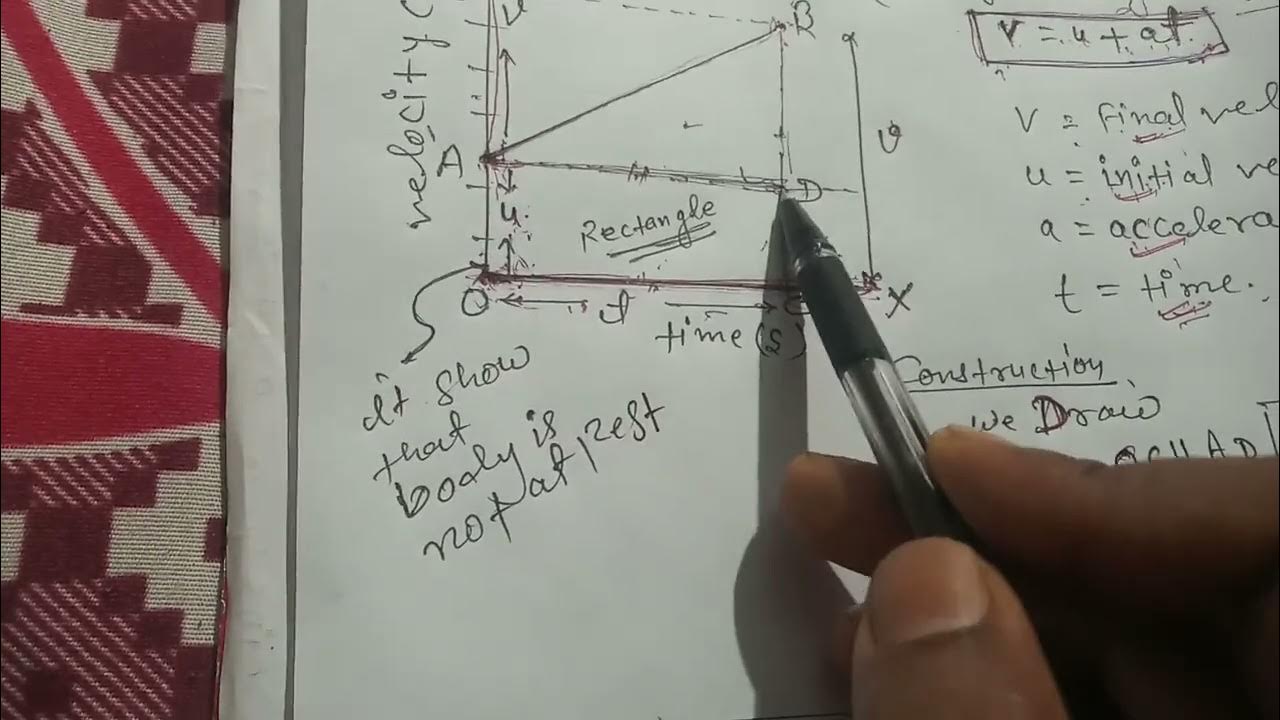 velocity (
v
B
A
u
D
Rectangle
v
O
t
X
time (s)
it show
that
body is
not at rest
v = u + at
v = final vel
u = initial ve
a = accelera
t = time.
Construction
we Draw